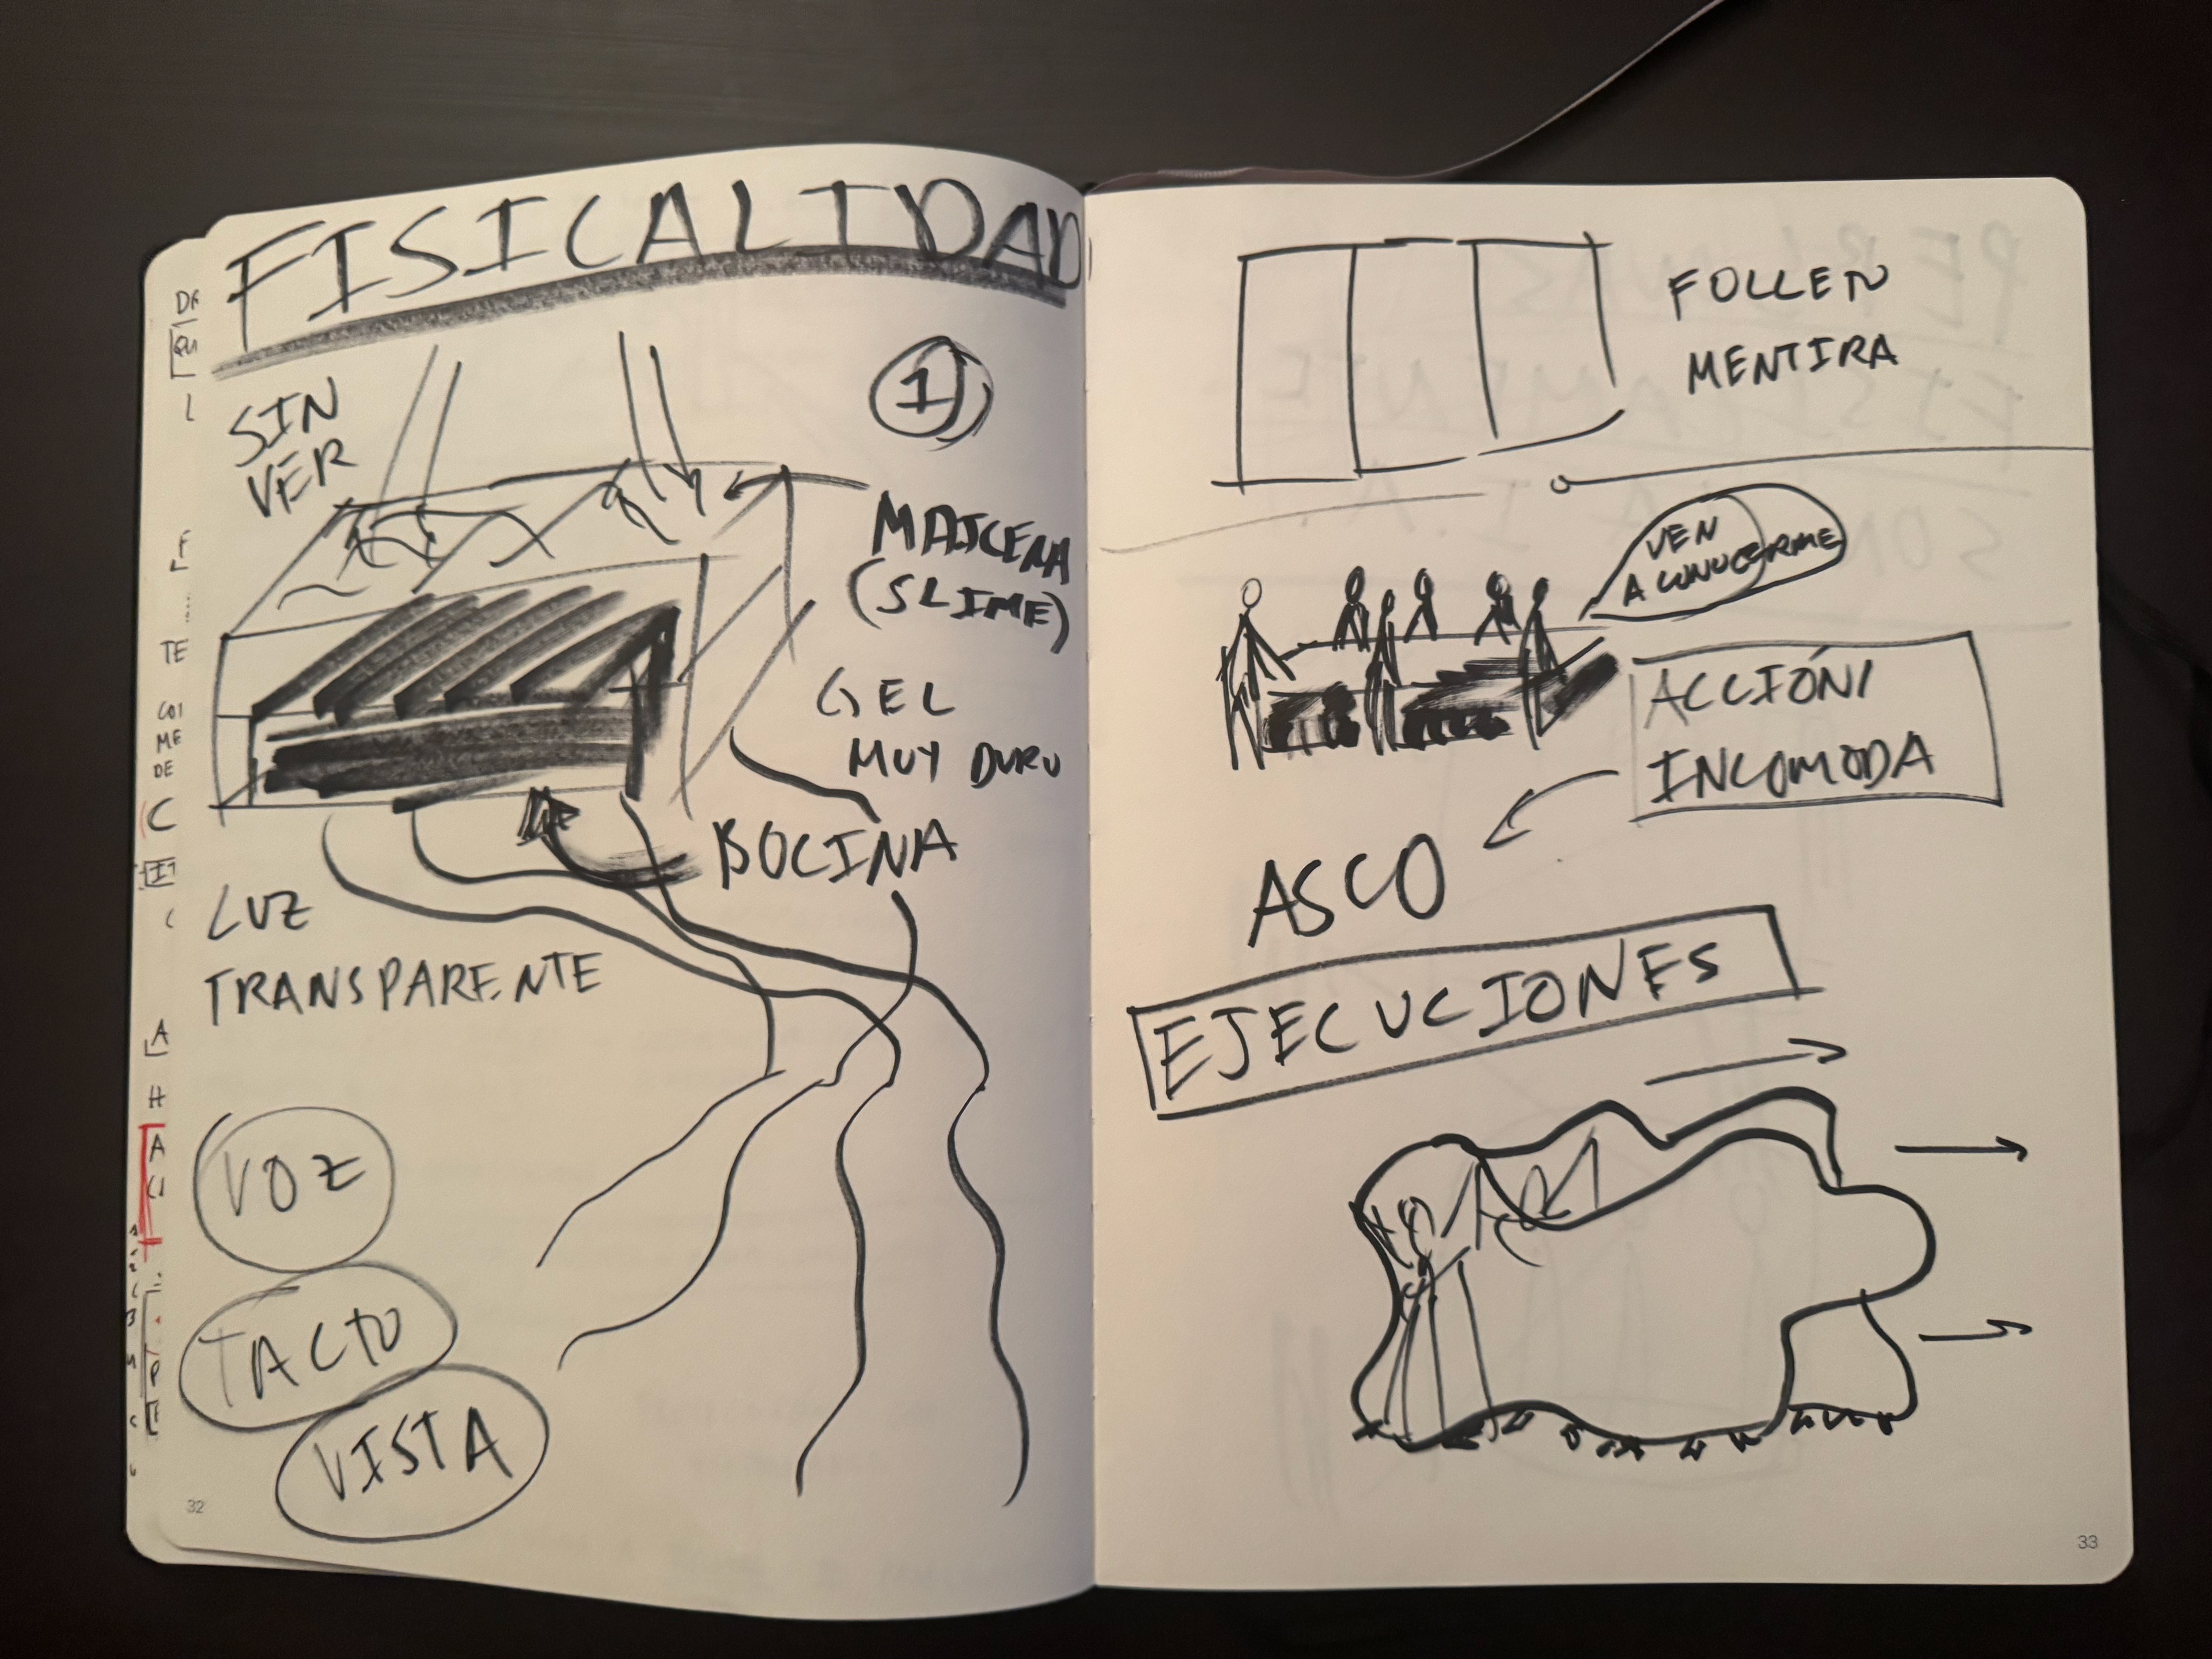 FISICALIDAD
SIN
VER
1
MAICENA
(SLIME)
GEL
MUY DURO
BOCINA
LUZ
TRANSPARENTE
VOZ
TACTO
VISTA
32
FOLLEN
MENTIRA
VEN
A CONOCERME
ACCIÓN
INCOMODA
ASCO
EJECUCIONES
33
DA
QU
L
F
TE
COI
ME
DE
C
A
H
A